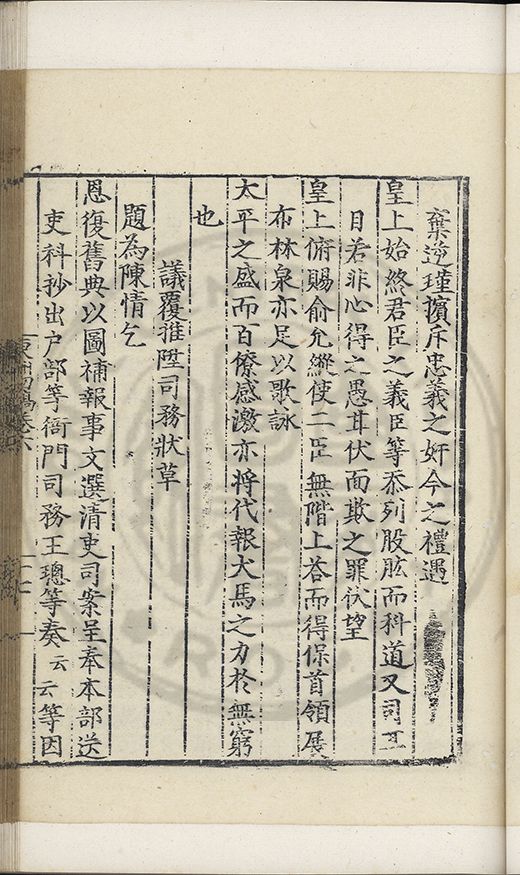 棄逆瑾擯斥忠義之奸今之禮遇
皇上始終君臣之義臣等忝列股肱而科道又司耳
目若非心得之愚甘伏面欺之罪伏望
皇上俯賜俞允縱使二臣無階上荅而得保首領展
布林泉亦足以歌詠
太平之盛而百僚感激亦將代報犬馬之力於無窮
也
議覆推陞司務狀草
題為陳情乞
恩復舊典以圖補報事文選清吏司案呈奉本部送
吏科抄出户部等衙門司務王璁等奏云云等因
東洲初稿卷六